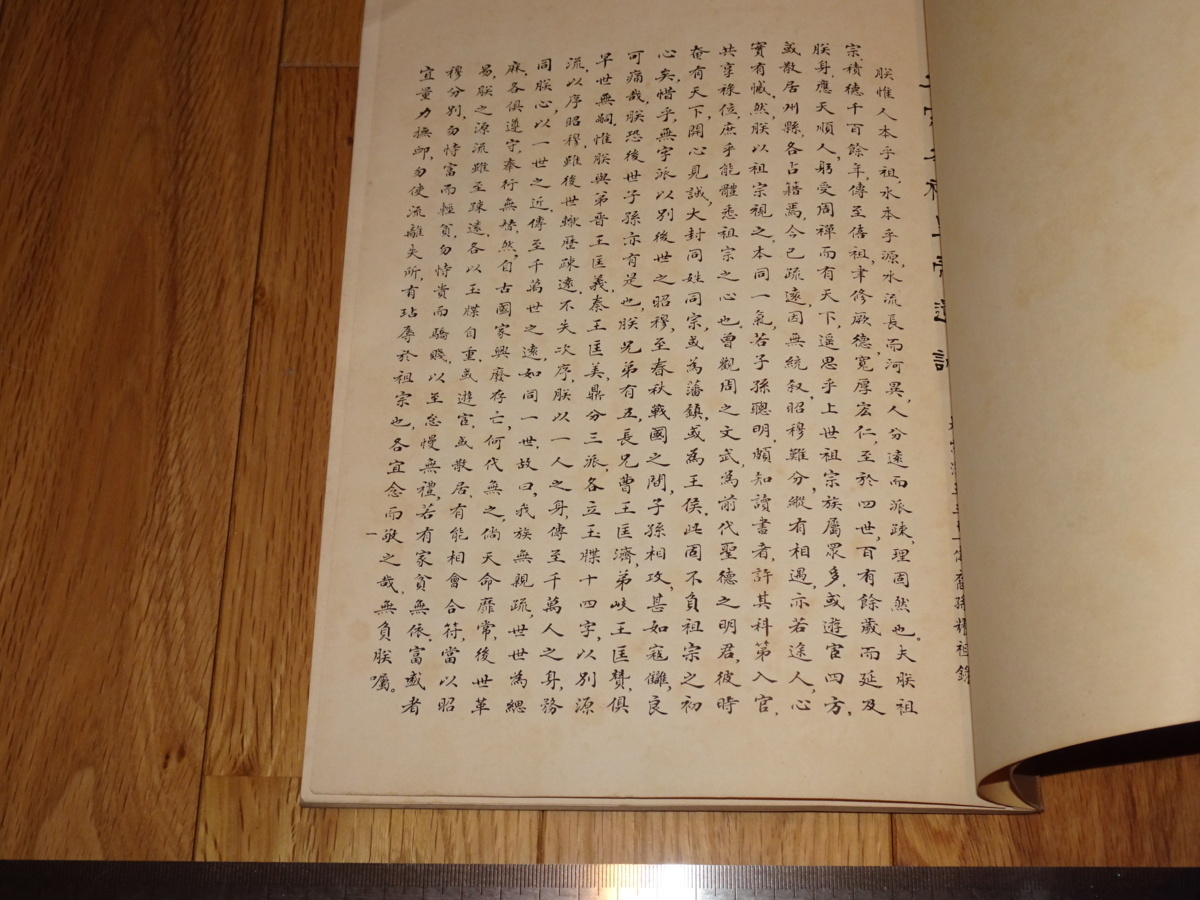 太宗老祖上帝遺訓
裔孫耕祖錄
朕惟人本乎祖，水本乎源，水流長而河異，人分遠而派疎，理固然也。夫朕祖
宗，積德千百餘年，傳至僖祖，聿修厥德，寬厚宏仁，至於四世，百有餘歲而延及
朕身，應天順人，躬受周禪而有天下，遥思乎上世祖宗族屬眾多，或遊宦四方，
或散居州縣，各占籍焉，今已疏遠，因無統叙，昭穆難分，縱有相遇，亦若途人，心
實有慽，然朕以祖宗視之，本同一氣，若子孫聰明，頗知讀書者，許其科第入官，
共享祿位，庶乎能體悉祖宗之心也，曾觀周之文武，為前代聖德之明君，彼時
奄有天下，開心見誠，大封同姓同宗，或為藩鎮，或為王侯，此固不負祖宗之初
心矣，惜乎，無字派以別後世之昭穆，至春秋戰國之間，子孫相攻，甚如寇讎，良
可痛哉，朕恐後世子孫亦有是也，朕兄弟有五，長兄曹王匡濟，弟岐王匡贊，俱
早世無嗣，惟朕與弟晉王匡義，秦王匡美，鼎分三派，各立玉牒十四字，以別源
流，以序昭穆，雖後世緜歷疎遠，不失次序，朕以一人之身，傳至千萬人之身，務
同朕心，以一世之近，傳至千萬世之遠，如同一世，故曰，我族無親疏，世世為緦
麻，各俱遵守，奉行無替，然自古國家興廢存亡，何代無之，倘天命靡常，後世革
易，朕之源流雖至疎遠，各以玉牒自重，或遊宦，或散居，有能相會合符，當以昭
穆分別，勿恃富而輕貧，勿恃貴而驕賤，以至怠慢無禮，若有家貧無依，富盛者
宜量力撫卹，勿使流離失所，有玷辱於祖宗也，各宜念而敬之哉，無負朕囑。
一